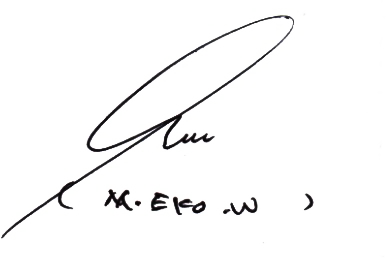 ( M. EKO .W )